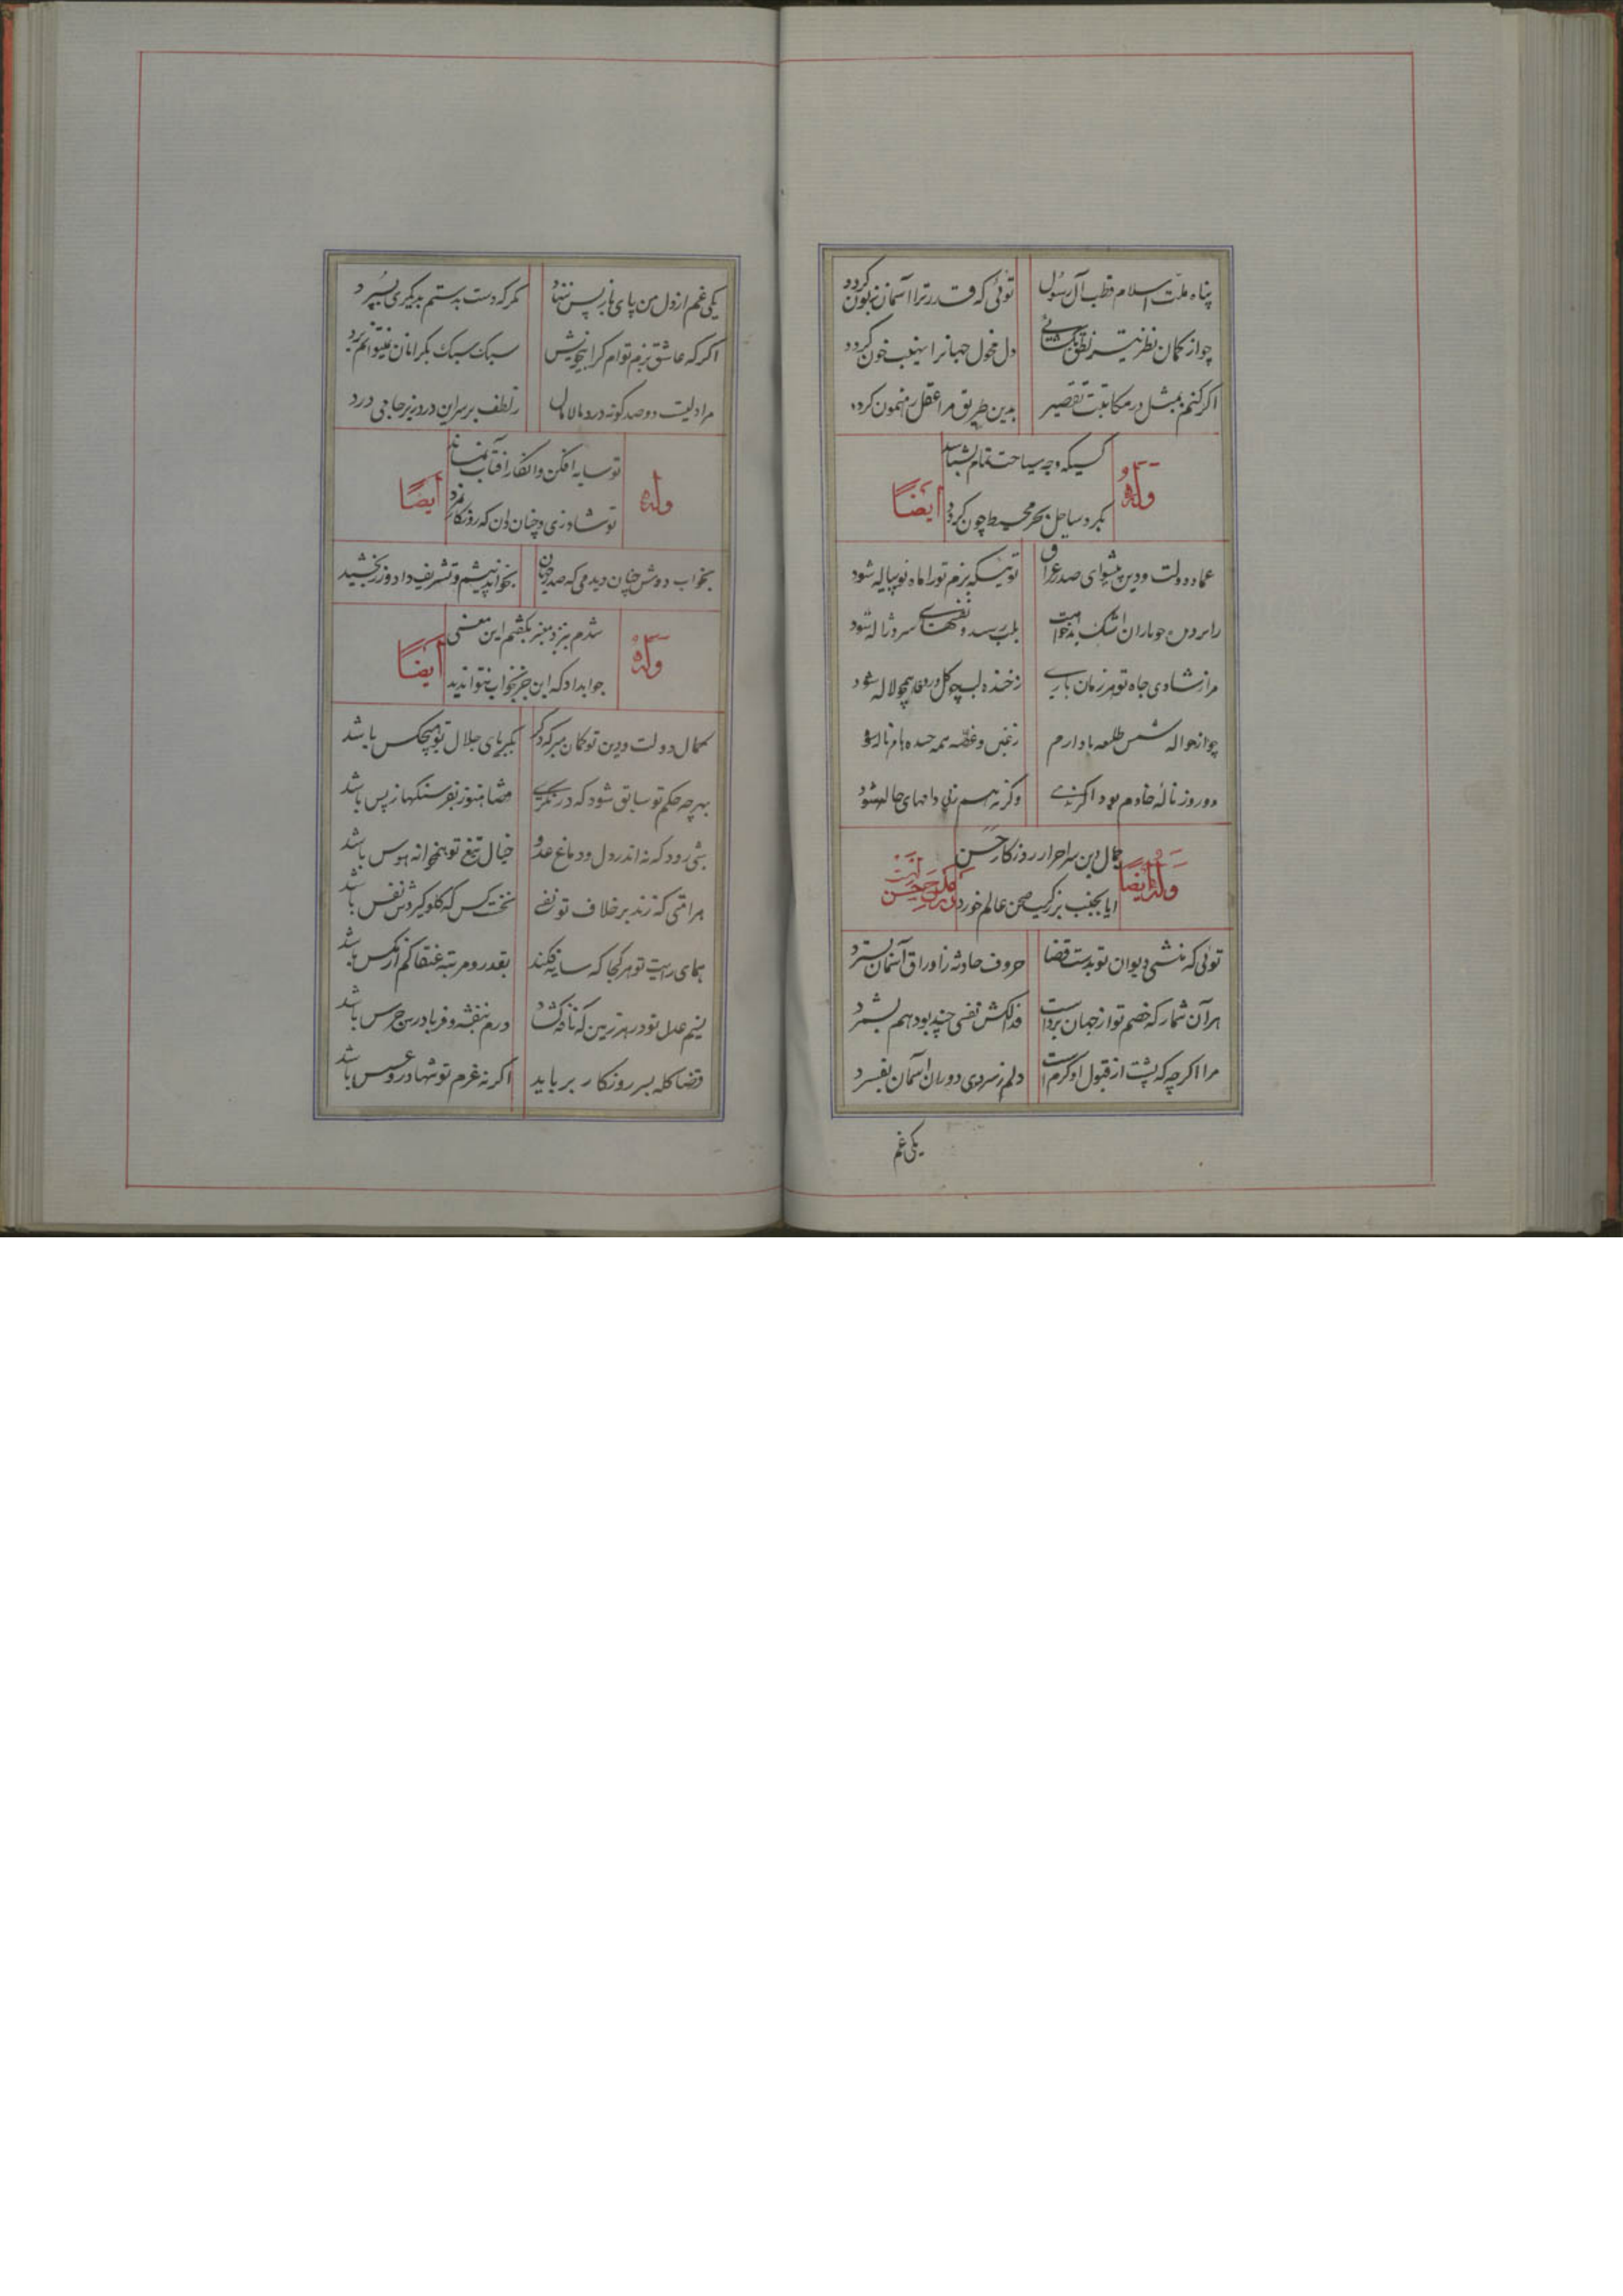 پناه ملت اسلام قطب آل رسول توئی که قدر ترا آسمان زبون گردد
چو از کمان نظر تیر نطق بگشائی دل فحول جهانرا نهیب خون گردد
اگر کنم بمثل در مکاتبت تقصیر بدین طریق مرا عقل رهنمون گردد
وله کسیکه وجه سیاحت تمام نشناسد
بگرد ساحل بحر محیط چون گردد ایضاً
عماد دولت و دین پیشوای صدر عراق توئیکه بزم تو را ماه نو پیاله شود
باران اشک بدخواهت بلب رسد و نفسهای سرد ژاله شود
مرا ز شادی جاه تو هر زمان باری ز خنده لب چو گل و رخ همچو لاله شود
چو از حواله شمس طلعه یاد آرم ز غبن و غصه همه خنده هام ناله شود
دو روز نائه خادم بود اگر ندی وگرنه هم زنی حاله شود
وله ایضاً جمال دین سر احرار روزگار حسن
ایا بجنب بزرگیت صحن عالم خورد
توئی که منشی دیوان تو بدست قضا حروف حادثه ز اوراق آسمان بسترد
هر آن شمار که خصم تو از جهان برداشت فذلکش نفسی چند بود هم بشمرد
مرا اگر چه که پشت از قبول او گرم است دلم ز سردی دوران آسمان بفسرد
یکی غم
یکی غم از دل من پای باز پس ننهاد مگر که دست بدستم بدیگری بسپرد
اگر که عاشق بزم توام گرانجانیش سبک سبک بگرانان نمیتوانم برد
مرا دلیست دو صد گونه درد مالامال ز لطف بر سر این درد نیز جامی درد
وله تو سایه افکن و انگار آفتاب نماند
تو شاد زی و چنان دان که روزگار بمرد ایضاً
بخواب دوش چنان دیدمی که صدر جهان بخواند پیشم و تشریف داد و زر بخشید
وله شدم بنزد معبر بگفتم این معنی
جوابداد که این جز بخواب نتوان دید ایضاً
کمال دولت و دین تو گمان مبر که دگر بکبریای جلال تو هیچکس باشد
بهر چه حکم تو سابق شود که در نگری قضا هنوز بفرسنگها ز پس باشد
شبی رود که نه اندر دل و دماغ عدو خیال تیغ تو بهم خانه هوس باشد
هر امتی که زند بر خلاف تو نفسی نخست کس که گلو گیردش نفس باشد
همای رایت تو هر کجا که سایه فکند بقدر و مرتبه عنقا کم از مگس باشد
نسیم عدل تو در هر زمین که نافه گشاد درم بنفشه و فریادرس جرس باشد
قضا کله بسر روزگار برباید اگر نه عزم تو شبها در و عسس باشد